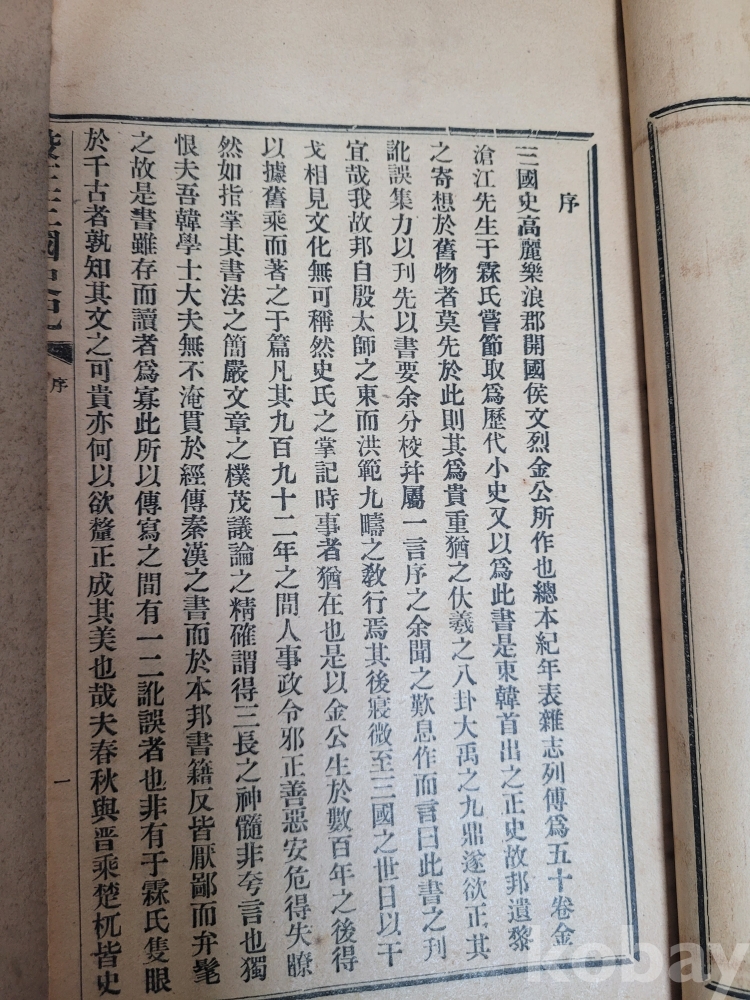 序
三國史高麗樂浪郡開國侯文烈金公所作也總本紀年表雜志列傳爲五十卷金
滄江先生于霖氏嘗節取爲歷代小史又以爲此書是東韓首出之正史故邦遺黎
之寄想於舊物者莫先於此則其爲貴重猶之伏羲之八卦大禹之九鼎遂欲正其
訛誤集力以刊先以書要余分校幷屬一言序之余聞之歎息作而言曰此書之刊
宜哉我故邦自殷太師之東而洪範九疇之敎行焉其後寢微至三國之世日以干
戈相見文化無可稱然史氏之掌記時事者猶在也是以金公生於數百年之後得
以據舊乘而著之于篇凡其九百九十二年之間人事政令邪正善惡安危得失瞭
然如指掌其書法之簡嚴文章之樸茂議論之精確謂得三長之神髓非夸言也獨
恨夫吾韓學士大夫無不淹貫於經傳秦漢之書而於本邦書籍反皆厭鄙而弁髦
之故是書雖存而讀者爲寡此所以傳寫之間有一二訛誤者也非有于霖氏隻眼
於千古者孰知其文之可貴亦何以欲釐正成其美也哉夫春秋與晋乘楚杌皆史
國史記
序
一
kobay